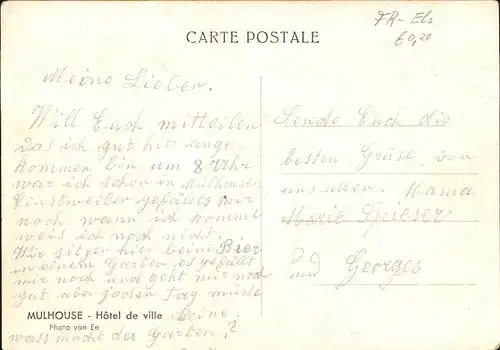 FR-Els
€0,20
CARTE POSTALE
Meine Lieben.
Will Euch mitteilen
das ich gut hier ange-
kommen bin um 8 Uhr
war ich schon in Mülhausen
Einstweilen gefällts mir
noch wann ich komme
weis ich noch nicht.
Wir sitzen hier beim Bier
in einem Garten es gefällt
mir noch und geht mir noch
gut aber jeden Tag müde
Beine.
wass macht der Garten?
Sende Euch die
besten Grüse von
uns allen. Mama
Marie Spieser
und Georges
MULHOUSE - Hôtel de ville
Photo van Ee